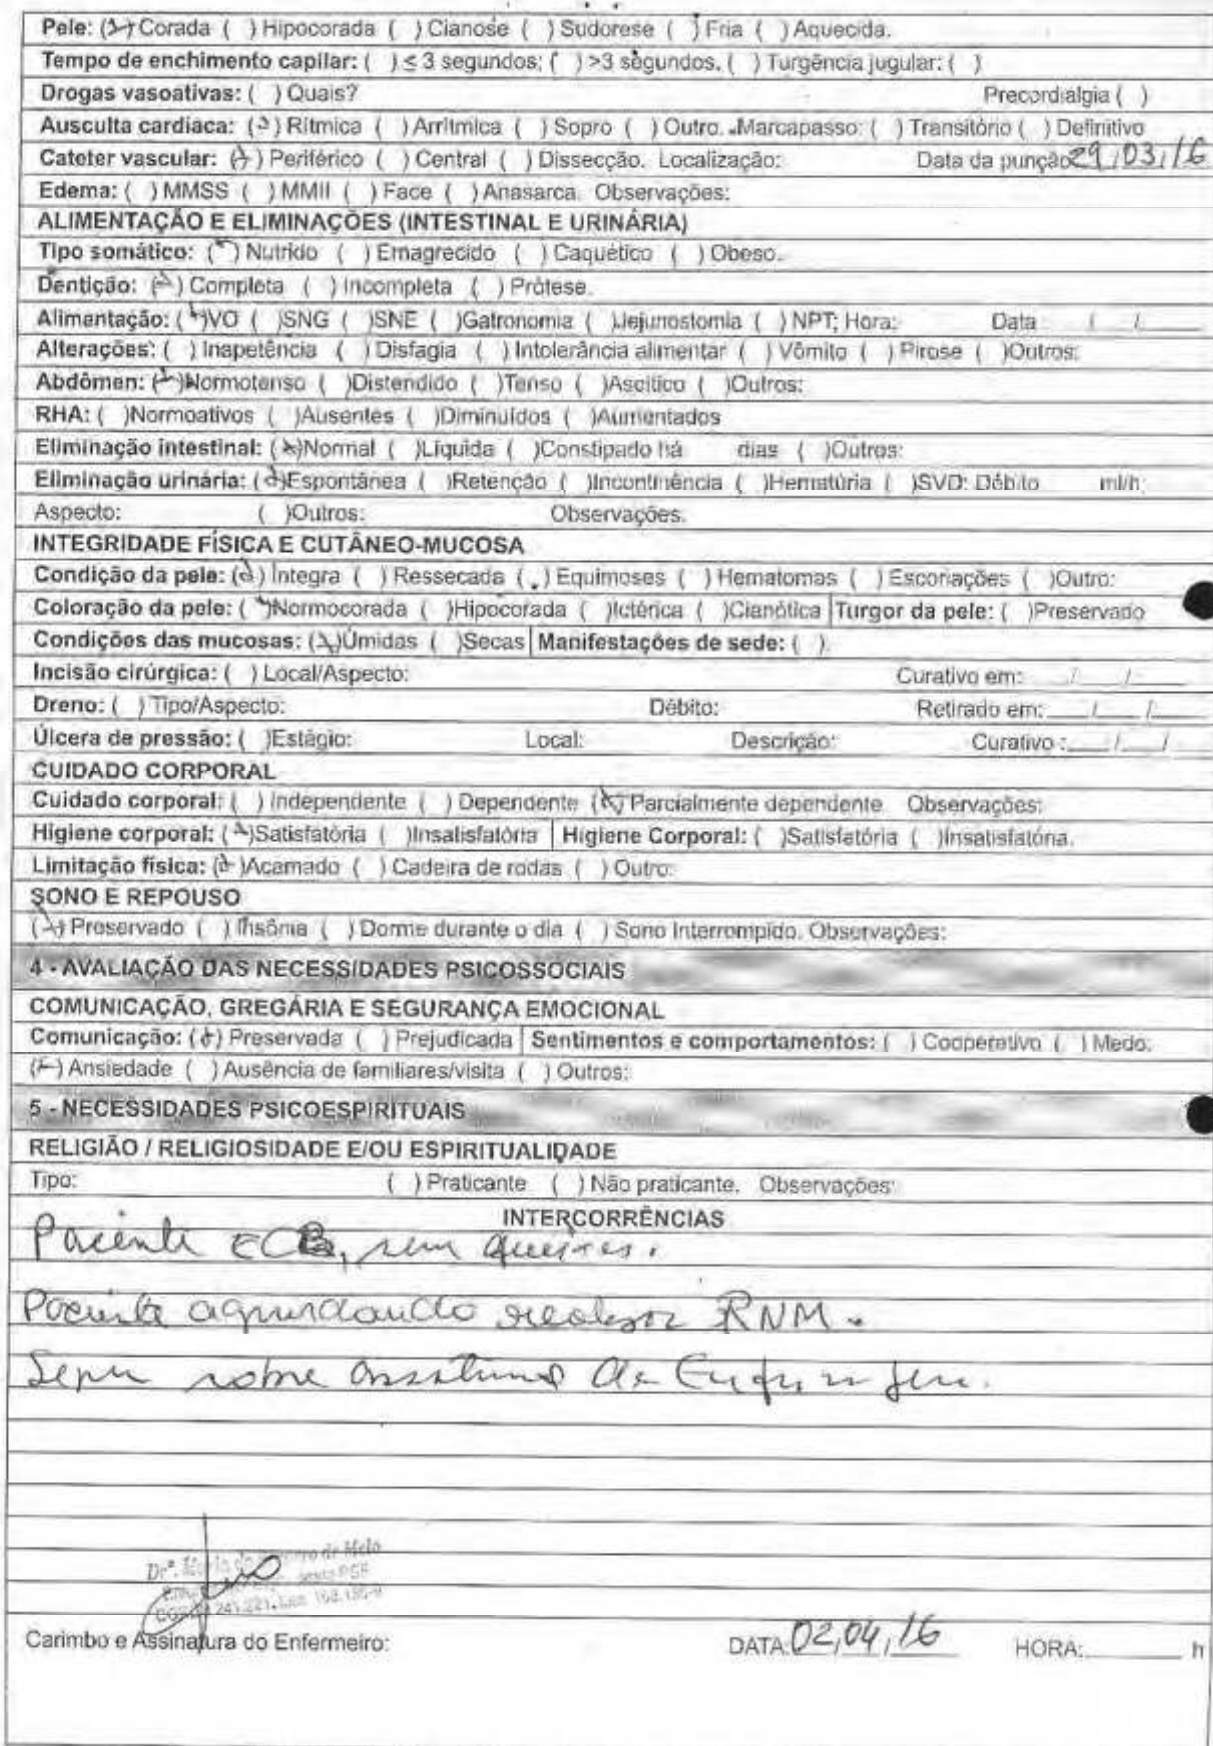 Pele: (x) Corada ( ) Hipocorada ( ) Cianose ( ) Sudorese ( ) Fria ( ) Aquecida.
Tempo de enchimento capilar: ( ) ≤ 3 segundos; ( ) >3 segundos. ( ) Turgência jugular: ( )
Drogas vasoativas: ( ) Quais? Precordialgia ( )
Ausculta cardíaca: (x) Rítmica ( ) Arrítmica ( ) Sopro ( ) Outro. Marcapasso: ( ) Transitório ( ) Definitivo
Cateter vascular: (x) Periférico ( ) Central ( ) Dissecção. Localização: Data da punção 29/03/16
Edema: ( ) MMSS ( ) MMII ( ) Face ( ) Anasarca. Observações:
ALIMENTAÇÃO E ELIMINAÇÕES (INTESTINAL E URINÁRIA)
Tipo somático: (x) Nutrido ( ) Emagrecido ( ) Caquético ( ) Obeso.
Dentição: (x) Completa ( ) Incompleta ( ) Prótese.
Alimentação: (x)VO ( )SNG ( )SNE ( )Gatronomia ( )Jejunostomia ( ) NPT; Hora: Data / /
Alterações: ( ) Inapetência ( ) Disfagia ( ) Intolerância alimentar ( ) Vômito ( ) Pirose ( )Outros:
Abdômen: (x)Normotenso ( )Distendido ( )Tenso ( )Ascitico ( )Outros:
RHA: ( )Normoativos ( )Ausentes ( )Diminuídos ( )Aumentados
Eliminação intestinal: (x)Normal ( )Líquida ( )Constipado há dias ( )Outros:
Eliminação urinária: (x)Espontânea ( )Retenção ( )Incontinência ( )Hematúria ( )SVD: Débito ml/h;
Aspecto: ( )Outros: Observações.
INTEGRIDADE FÍSICA E CUTÂNEO-MUCOSA
Condição da pele: (x) Íntegra ( ) Ressecada ( ) Equimoses ( ) Hematomas ( ) Escoriações ( )Outro:
Coloração da pele: (x)Normocorada ( )Hipocorada ( )Ictérica ( )Cianótica Turgor da pele: ( )Preservado
Condições das mucosas: (x)Úmidas ( )Secas Manifestações de sede: ( ).
Incisão cirúrgica: ( ) Local/Aspecto: Curativo em: / /
Dreno: ( ) Tipo/Aspecto: Débito: Retirado em: / /
Úlcera de pressão: ( )Estágio: Local: Descrição: Curativo : / /
CUIDADO CORPORAL
Cuidado corporal: ( ) Independente ( ) Dependente (x) Parcialmente dependente Observações:
Higiene corporal: (x)Satisfatória ( )Insatisfatória Higiene Corporal: ( )Satisfatória ( )Insatisfatória.
Limitação física: (x)Acamado ( ) Cadeira de rodas ( ) Outro:
SONO E REPOUSO
(x) Preservado ( ) Insônia ( ) Dorme durante o dia ( ) Sono Interrompido. Observações:
4 - AVALIAÇÃO DAS NECESSIDADES PSICOSSOCIAIS
COMUNICAÇÃO, GREGÁRIA E SEGURANÇA EMOCIONAL
Comunicação: (x) Preservada ( ) Prejudicada Sentimentos e comportamentos: ( ) Cooperativo ( ) Medo;
(x) Ansiedade ( ) Ausência de familiares/visita ( ) Outros:
5 - NECESSIDADES PSICOESPIRITUAIS
RELIGIÃO / RELIGIOSIDADE E/OU ESPIRITUALIDADE
Tipo: ( ) Praticante ( ) Não praticante. Observações:
INTERCORRÊNCIAS
Paciente sem queixas.
Paciente aguardando realizar RNM.
Segue sobre assistencia de Enfermagem.
Drª. de Melo
Carimbo e Assinatura do Enfermeiro: DATA: 02/04/16 HORA: h